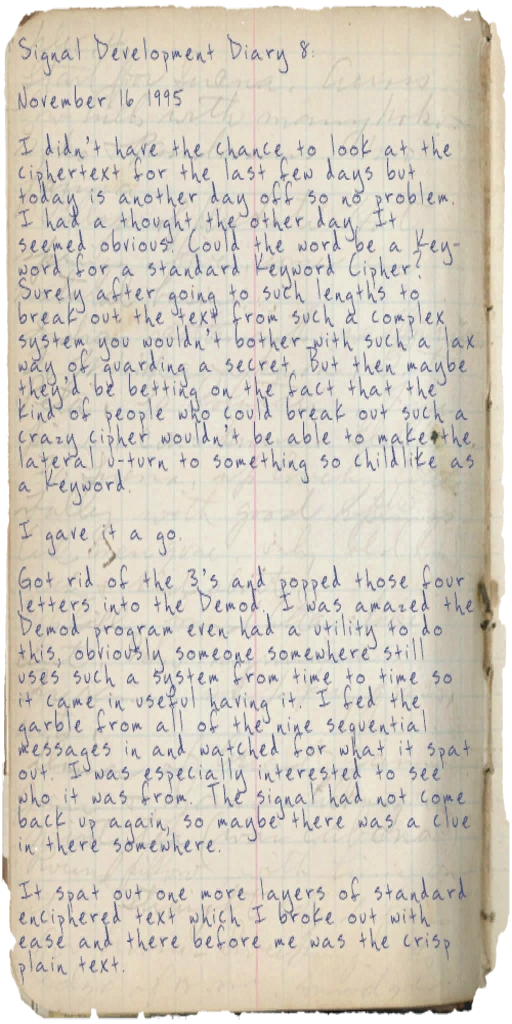 Signal Development Diary 8:
November 16 1995
I didn't have the chance to look at the
ciphertext for the last few days but
today is another day off so no problem.
I had a thought the other day. It
seemed obvious. Could the word be a key-
word for a standard Keyword Cipher?
Surely after going to such lengths to
break out the text from such a complex
system you wouldn't bother with such a lax
way of guarding a secret. But then maybe
they'd be betting on the fact that the
kind of people who could break out such a
crazy cipher wouldn't be able to make the
lateral u-turn to something so childlike as
a keyword.
I gave it a go.
Got rid of the 3's and popped those four
letters into the Demod. I was amazed the
Demod program even had a utility to do
this, obviously someone somewhere still
uses such a system from time to time so
it came in useful having it. I fed the
garble from all of the nine sequential
messages in and watched for what it spat
out. I was especially interested to see
who it was from. The signal had not come
back up again, so maybe there was a clue
in there somewhere.
It spat out one more layers of standard
enciphered text which I broke out with
ease and there before me was the crisp
plain text.